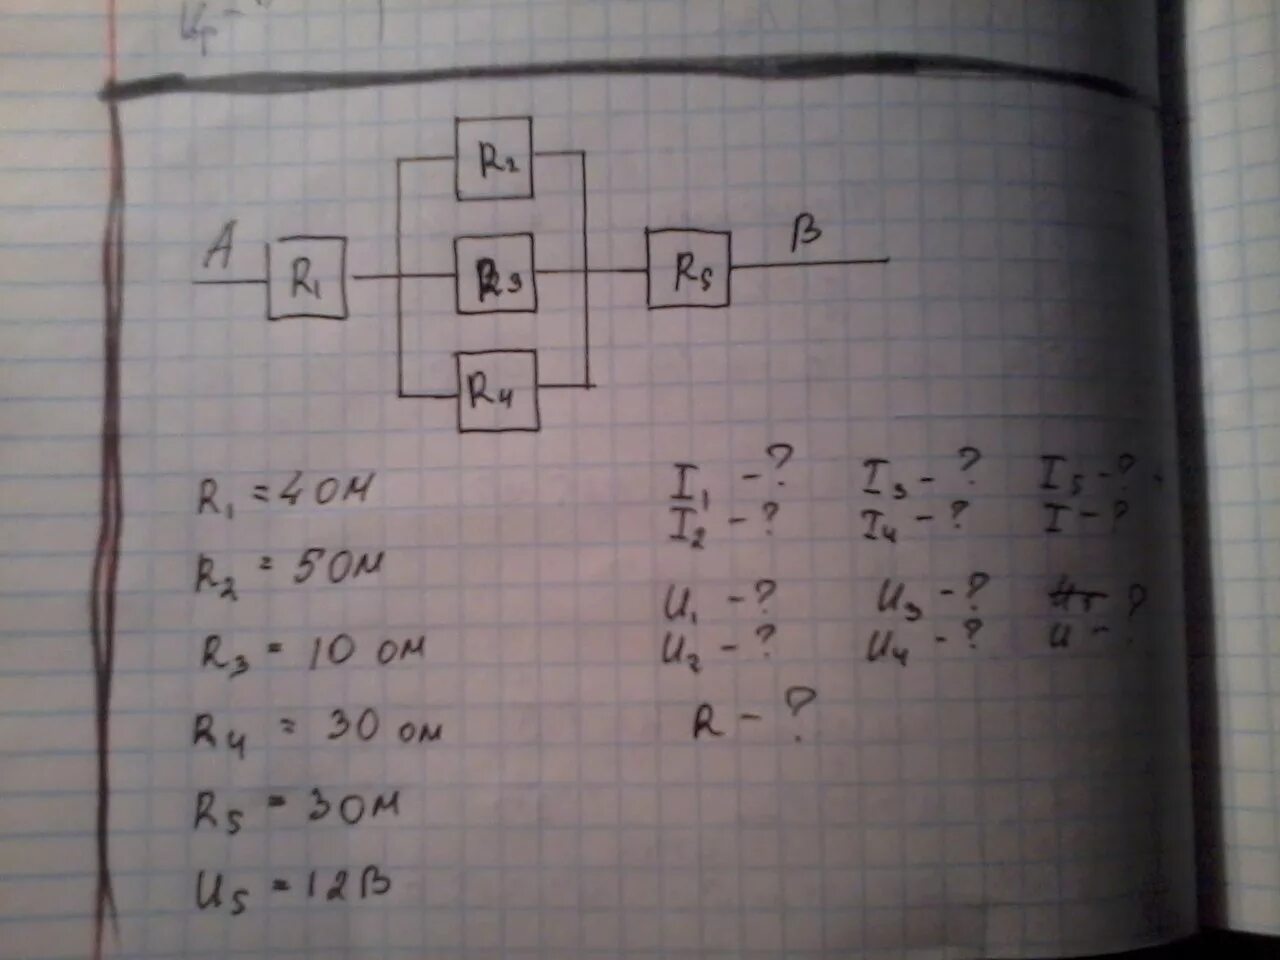 A
R₁
R₂
R₃
R₄
R₅
B
R₁ = 4 ОМ
R₂ = 5 ОМ
R₃ = 10 ОМ
R₄ = 30 ОМ
R₅ = 3 ОМ
U₅ = 12 В
I₁ - ? I₃ - ? I₅ - ?
I₂ - ? I₄ - ? I - ?
U₁ - ? U₃ - ? U₅ ?
U₂ - ? U₄ - ? U - ?
R - ?